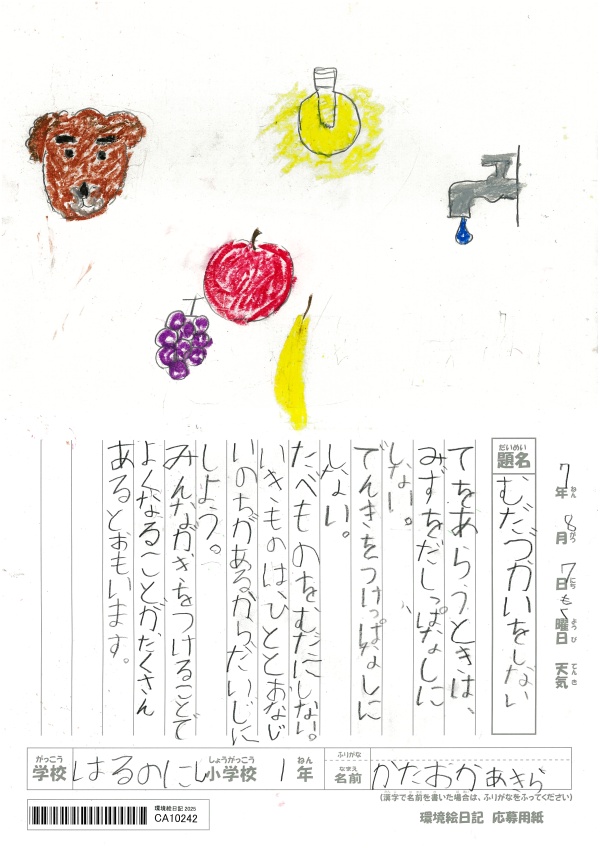 7年 8月 7日 もく曜日 天気
ねん がつ にち ようび てんき
だいめい
題名 むだづかいをしない
てをあらうときは、
みずをだしっぱなしに
しない。
でんきをつけっぱなしに
しない。
たべものをむだにしない。
いきものは、ひととおなじ
いのちがあるからだいじに
しよう。
みんながきをつけることで
よくなることがたくさん
あるとおもいます。
がっこう しょうがっこう ねん
学校 はるのにし小学校 1年
ふりがな
なまえ
名前 かたおかあきら
(漢字で名前を書いた場合は、ふりがなをふってください)
環境絵日記 2025
CA10242
環境絵日記 応募用紙